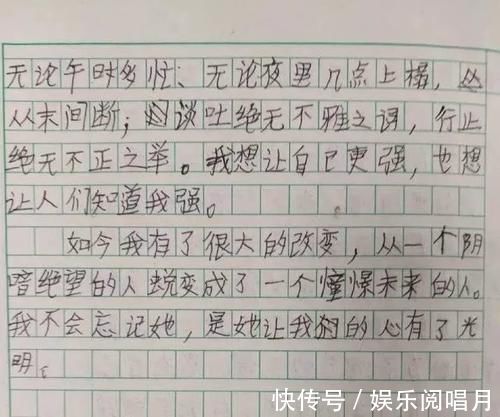 无论午时多忙、无论夜里几点上榻,
从未间断;谈吐绝无不雅之词,行止
绝无不正之举。我想让自己更强,也想
让人们知道我强。
如今我有了很大的改变,从一个阴
暗绝望的人蜕变成了一个憧憬未来的人。
我不会忘记她,是她让我的心有了光
明。
快传号/娱乐阅唱月